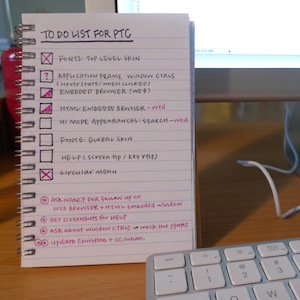 TO DO LIST FOR PTC
FONTS: TOP LEVEL SKIN
? APPLICATION FRAME - WINDOW CTRLS
(HOVER STATE / WHEN CLICKED)
EMBEDDED BROWSER (WEB)
HTML EMBEDDED BROWSER - wed
HI MODE APPEARANCES: SEARCH - wed
FONTS: GLOBAL SKIN
HELP (screen tip / key tip)
circular menu
ASK NANCY for follow up on
WEB BROWSER + HTML Embedded window
Get screenshots for HELP
ask about window CTRLS → mask the states
update Christine +